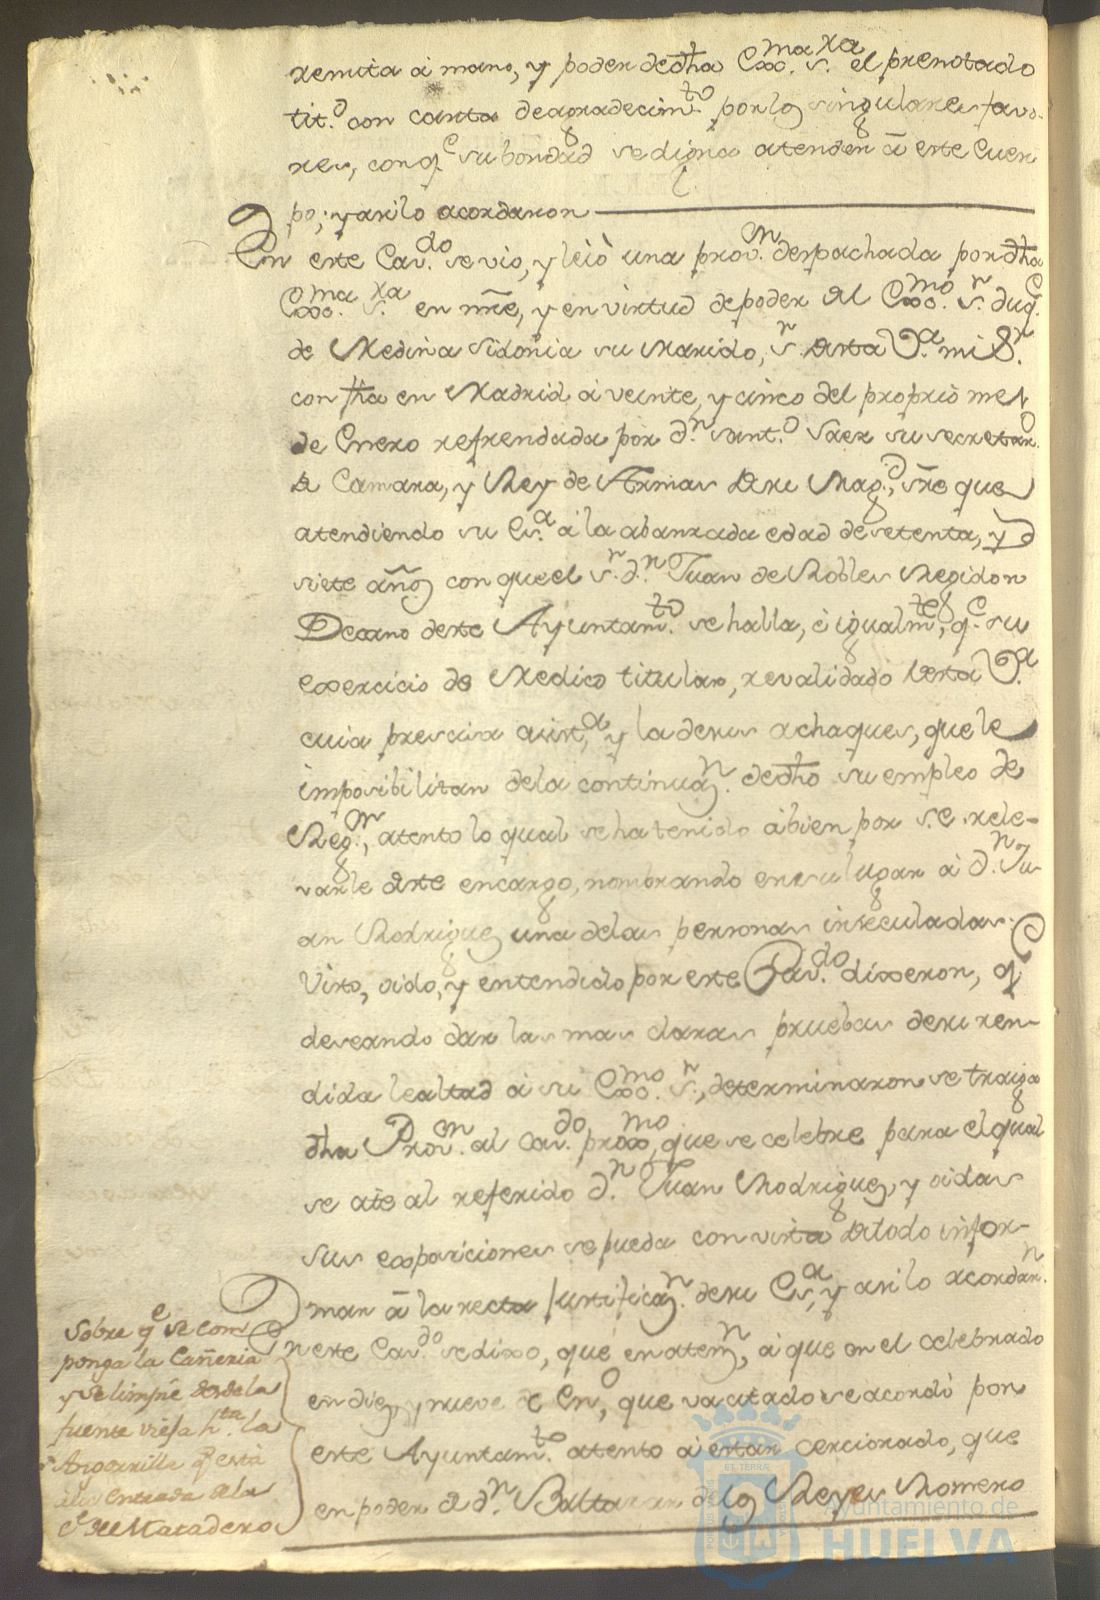 remita â mano, y poder dedha Exma. Sa. el prenotado
tit.o con carta deagradecim.to por los singulares favo-
res, conq.e subondad sedigna atender â este Cuer
po; yasilo acordaron
En este Cav.do sevio, yleiò una prov.n despachada por dha
Exma. Sra. en nre, y en virtud depoder del Exmo. Sr. duq.e
de Medina Sidonia su Marido, Sr. desta V.a mi Sr.
con fha en Madrid â veinte, y cinco del proprio mes
de Enero refrendada por dn. Sant.o Saez su secretar.o
de Camara, y Rey de Armas desu Mag.d, sre que
atendiendo su Ex.a a la abanzada edad desetenta, y
siete años conqueel Sr. dn. Juan de Robles Regidor
Decano deste Ayuntam.to sehalla, è igualm.te, q.e su
exercicio de Medico titular, revalidado desta V.a
cuia presisa asist.a, y lademas achaques, que le
imposibilitan dela continuaz.n dedho su empleo de
Reg.or, atento lo qual sehatenido àbien por S.E. rele-
varle deste encargo, nombrando ensulugar à dn. Ju-
an Rodriguez una delas personas inseculadas.
Visto, oido, y entendido por este Cav.do dixeron, q.e
deseando dar las mas claras pruebas desu ren-
dida lealtad â su Exmo. Sr., determinaron se traiga
dha Prov.n al Cav.do proxmo, que se celebre para elqual
se cite al referido dn. Juan Rodriguez, y oidas
sus exposiciones sepueda con vista detodo infor-
mar â la recta justificaz.n desu Ex.a, y asilo acordar.n
En este Cav.do sedixo, que enaten.n, â que en el celebrado
endiez, y nueve de En.o, que va citado seacordò por
este Ayuntam.to atento â estar cerciorado, que
enpoder de dn. Baltasar delos Reyes Romero
Sobre q.e se com
ponga la Cañeria
y se limpie desdela
fuente vieja h.ta la
Argorrilla q.e està
àla entrada dela
C.e del Matadero
Ayuntamiento de
HUELVA